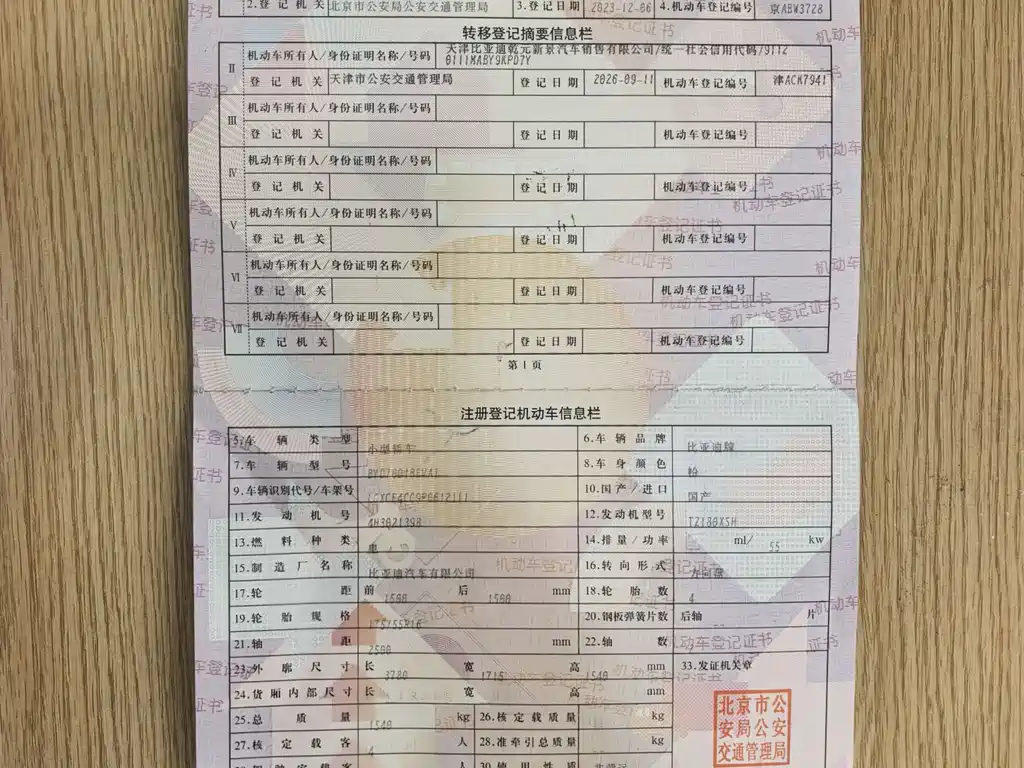 2.登记机关 北京市公安局公安交通管理局 3.登记日期 2023-12-06 4.机动车登记编号 京ABW3728
转移登记摘要信息栏
II 机动车所有人/身份证明名称/号码 天津比亚迪乾元新景汽车销售有限公司/统一社会信用代码/9112
0111MABY9KPD7Y
登记机关 天津市公安交通管理局 登记日期 2026-09-11 机动车登记编号 津ACK7941
III 机动车所有人/身份证明名称/号码
登记机关 登记日期 机动车登记编号
IV 机动车所有人/身份证明名称/号码
登记机关 登记日期 机动车登记编号
V 机动车所有人/身份证明名称/号码
登记机关 登记日期 机动车登记编号
VI 机动车所有人/身份证明名称/号码
登记机关 登记日期 机动车登记编号
VII 机动车所有人/身份证明名称/号码
登记机关 登记日期 机动车登记编号
第1页
注册登记机动车信息栏
5.车辆类型 小型轿车 6.车辆品牌 比亚迪牌
7.车辆型号 8.车身颜色 粉
9.车辆识别代号/车架号 10.国产/进口 国产
11.发动机号 4H3021398 12.发动机型号 TZ180XSH
13.燃料种类 电 14.排量/功率 ml/ 55 kw
15.制造厂名称 比亚迪汽车有限公司 16.转向形式 方向盘
17.轮距 前 1500 后 1500 mm 18.轮胎数 4
19.轮胎规格 20.钢板弹簧片数 后轴 片
21.轴距 2500 mm 22.轴数
23.外廓尺寸 长 3780 宽 1715 高 1540 mm 33.发证机关章
24.货厢内部尺寸 长 宽 高 mm
25.总质量 1540 kg 26.核定载质量 kg
27.核定载客 4 人 28.准牵引总质量 kg
人 30.使用性质 非营运
北京市公
安局公安
交通管理局